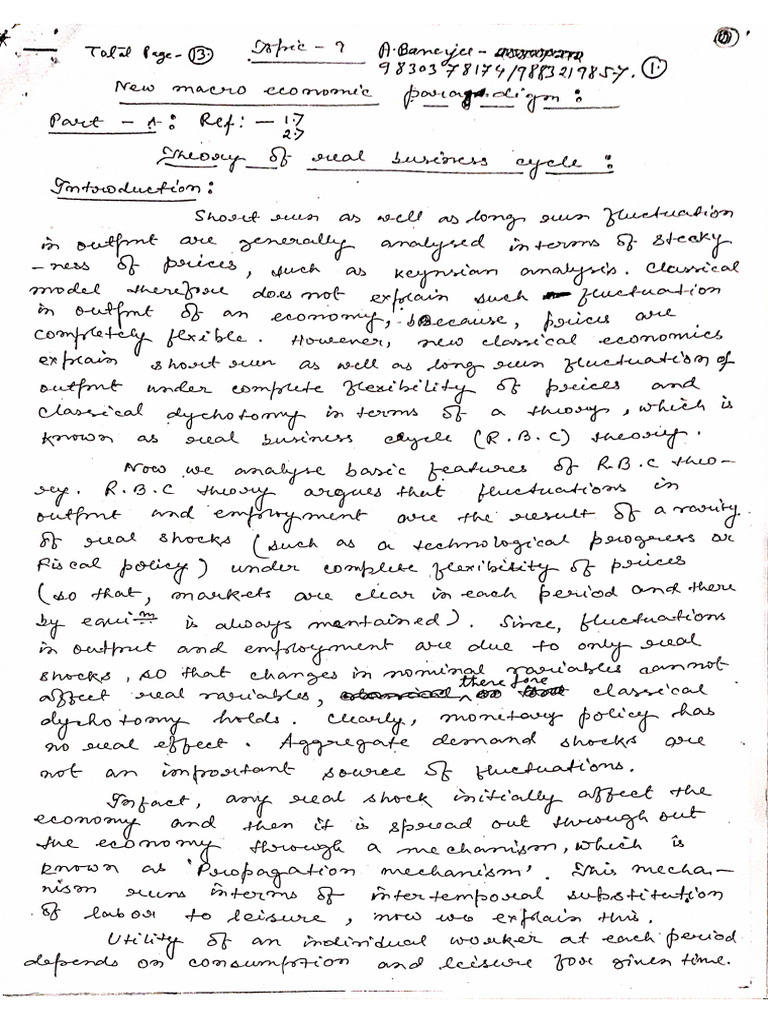 Total Page- 13. Topic - 9 A. Banerjee -
9830378174/9883219857. 1.
New macro economic paradigm:
Part - A: Ref: - 1.7
2.7
Theory of real business cycle:
Introduction:
Short run as well as long run fluctuation
in output are generally analysed in terms of steeky
-ness of prices, such as Keynsian analysis. Classical
model therefore does not explain such fluctuation
in output of an economy, because, prices are
completely flexible. However, new classical economics
explain short run as well as long run fluctuation of
output under complete flexibility of prices and
classical dychotomy in terms of a theory, which is
known as real business cycle (R.B.C) theory.
Now we analyse basic features of R.B.C theo-
ry. R.B.C theory argues that fluctuations in
output and employment are the result of a varity
of real shocks (such as a technological progress or
Fiscal policy) under complete flexibility of prices
(so that, markets are clear in each period and there
by equim is always mentained). Since, fluctuations
in output and employment are due to only real
shocks, so that changes in nominal variables cannot
affect real variables, therefore classical
dychotomy holds. Clearly, monetary policy has
no real effect. Aggregate demand shocks are
not an important source of fluctuations.
Infact, any real shock initially affect the
economy and then it is spread out through out
the economy through a mechanism, which is
known as 'Propagation mechanism'. This mecha-
nism runs interms of intertemporal substitution
of labor to leisure, now we explain this.
Utility of an individual worker at each period
depends on consumption and leisure for given time.